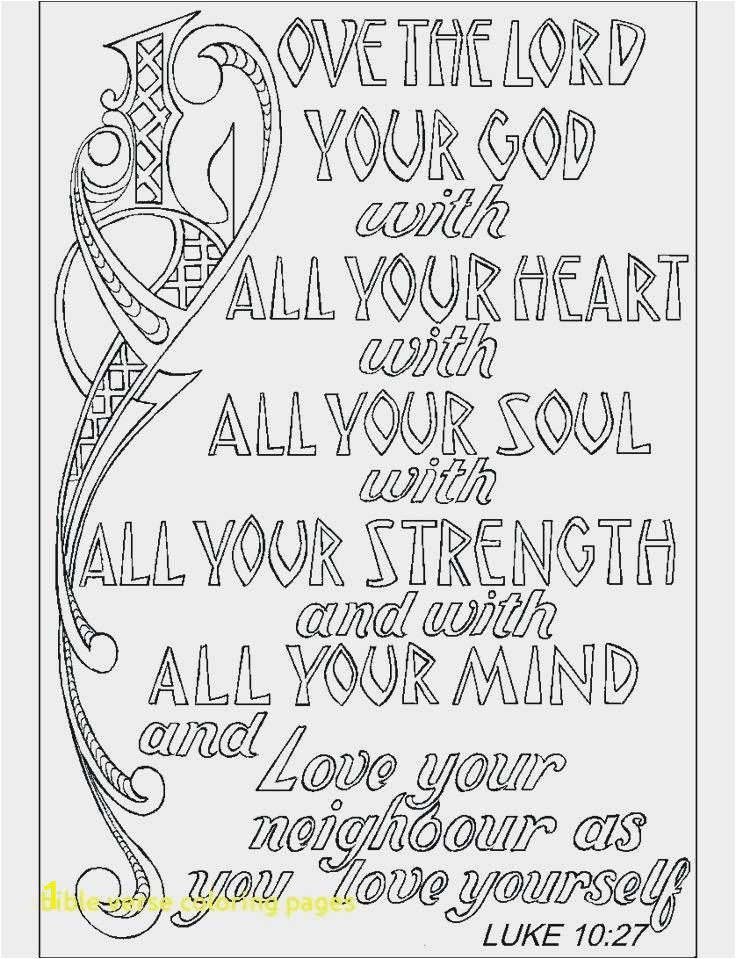 LOVE THE LORD
YOUR GOD
with
ALL YOUR HEART
with
ALL YOUR SOUL
with
ALL YOUR STRENGTH
and with
ALL YOUR MIND
and Love your
neighbour as
you love yourself
1 Bible verse coloring pages
LUKE 10:27